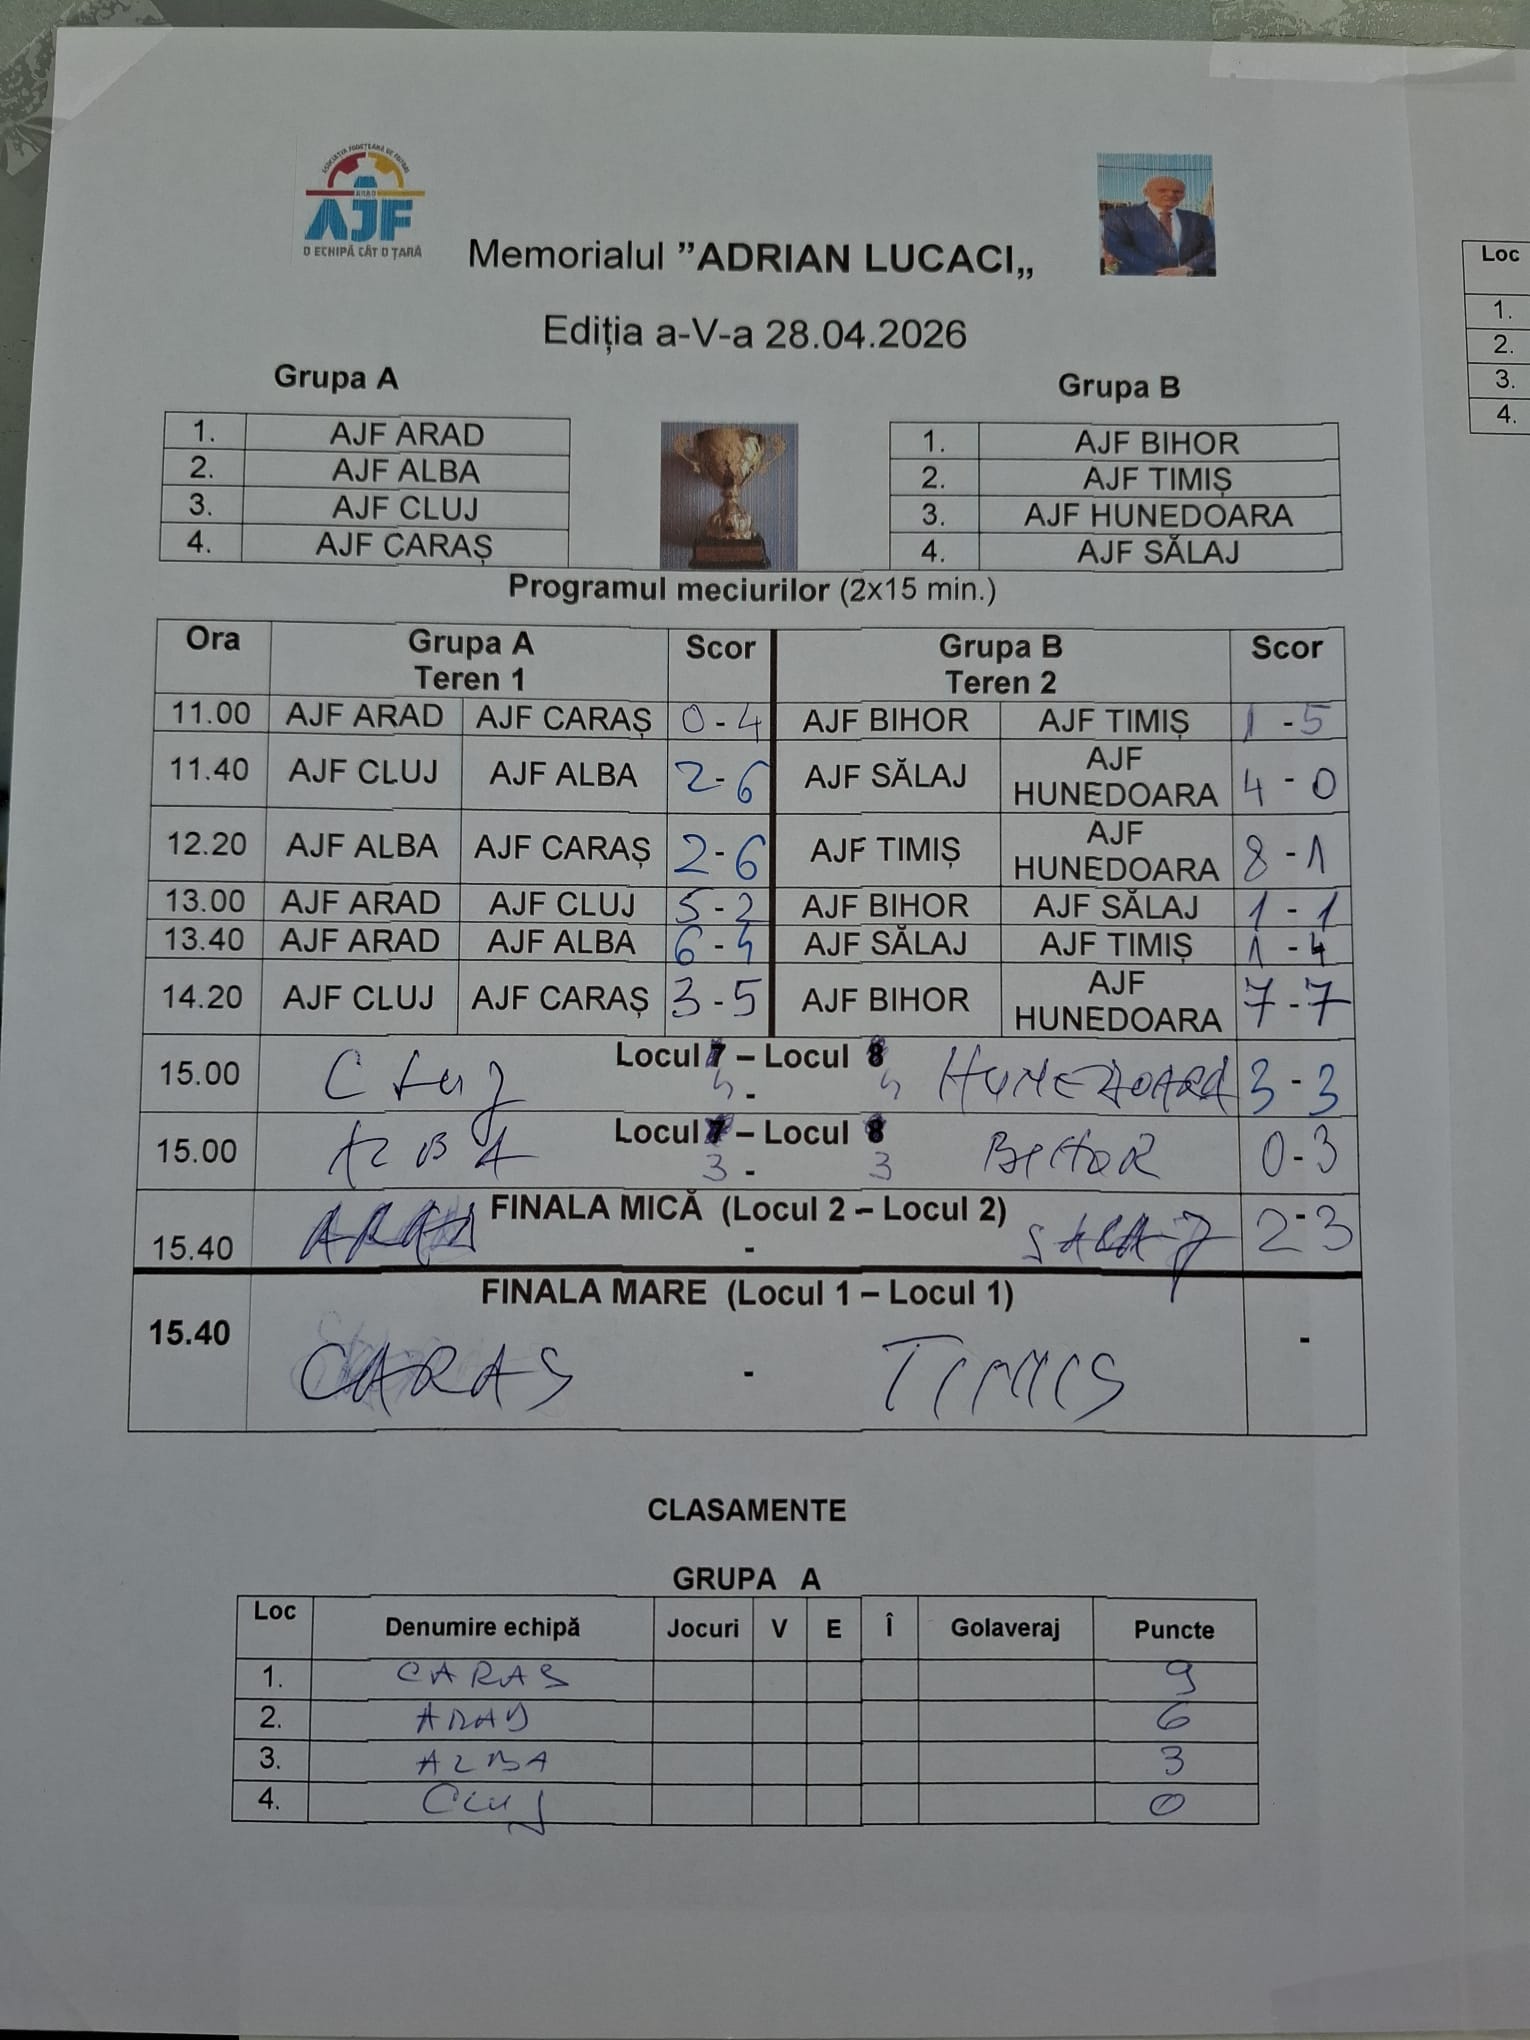 ASOCIAȚIA JUDEȚEANĂ DE FOTBAL
ARAD
AJF
O ECHIPĂ CÂT O ȚARĂ
Memorialul ”ADRIAN LUCACI„
Ediția a-V-a 28.04.2026
Grupa A
1. AJF ARAD
2. AJF ALBA
3. AJF CLUJ
4. AJF CARAȘ
Grupa B
1. AJF BIHOR
2. AJF TIMIȘ
3. AJF HUNEDOARA
4. AJF SĂLAJ
Programul meciurilor (2x15 min.)
Ora Grupa A Teren 1 Scor Grupa B Teren 2 Scor
11.00 AJF ARAD AJF CARAȘ 0-4 AJF BIHOR AJF TIMIȘ 1-5
11.40 AJF CLUJ AJF ALBA 2-6 AJF SĂLAJ AJF HUNEDOARA 4-0
12.20 AJF ALBA AJF CARAȘ 2-6 AJF TIMIȘ AJF HUNEDOARA 8-1
13.00 AJF ARAD AJF CLUJ 5-2 AJF BIHOR AJF SĂLAJ 1-1
13.40 AJF ARAD AJF ALBA 6-4 AJF SĂLAJ AJF TIMIȘ 1-4
14.20 AJF CLUJ AJF CARAȘ 3-5 AJF BIHOR AJF HUNEDOARA 7-7
Locul 7 – Locul 8
15.00 Cluj 4 - 4 HUNEDOARA 3-3
Locul 7 – Locul 8
15.00 ALBA 3 - 3 BIHOR 0-3
FINALA MICĂ (Locul 2 – Locul 2)
15.40 ARAD - SALAJ 2-3
FINALA MARE (Locul 1 – Locul 1)
15.40 CARAS - TIMIS -
CLASAMENTE
GRUPA A
Loc Denumire echipă Jocuri V E Î Golaveraj Puncte
1. CARAS 9
2. ARAD 6
3. ALBA 3
4. Cluj 0
Loc
1.
2.
3.
4.